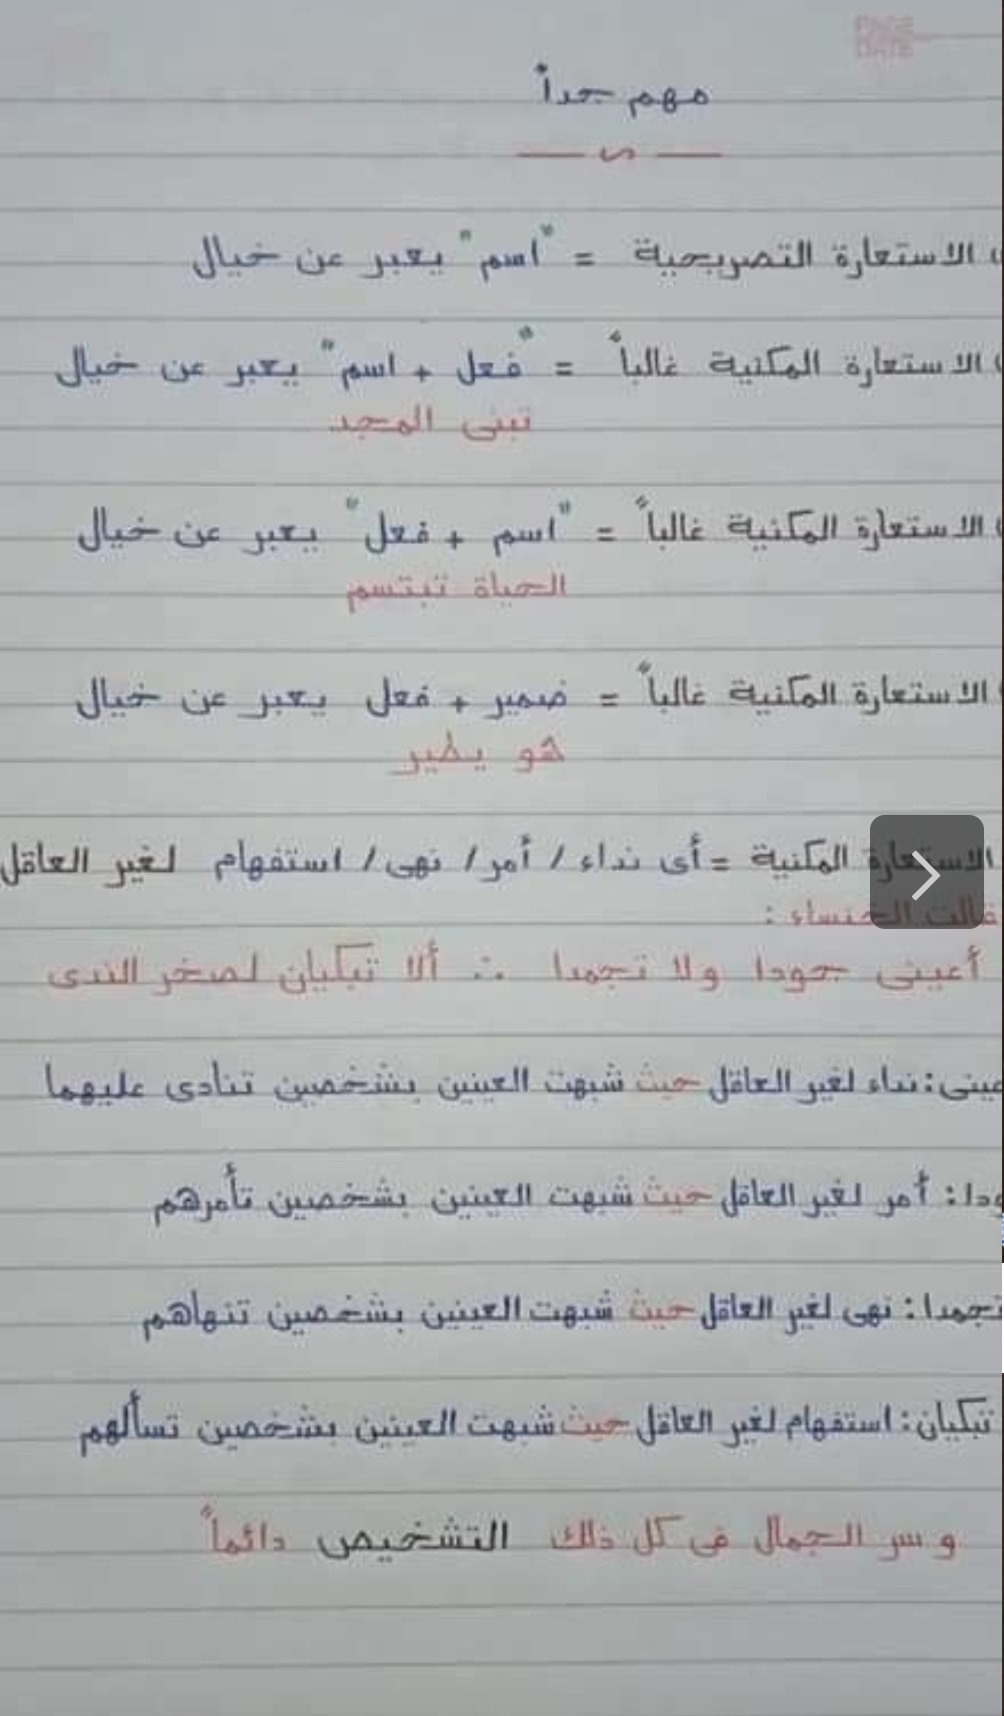 PAGE
DATE
مهم جداً
الاستعارة التصريحية = "اسم" يعبر عن خيال
الاستعارة المكنية غالباً = "فعل + اسم" يعبر عن خيال
تبنى المجد
الاستعارة المكنية غالباً = "اسم + فعل" يعبر عن خيال
الحياة تبتسم
الاستعارة المكنية غالباً = ضمير + فعل يعبر عن خيال
هو يطير
الاستعارة المكنية = أى نداء / أمر / نهى / استفهام لغير العاقل
قالت الخنساء :
أعينى جودا ولا تجمدا ∴ ألا تبكيان لصخر الندى
عينى : نداء لغير العاقل حيث شبهت العينين بشخصين تنادى عليهما
ودا : أمر لغير العاقل حيث شبهت العينين بشخصين تأمرهم
تجمدا : نهى لغير العاقل حيث شبهت العينين بشخصين تنهاهم
تبكيان : استفهام لغير العاقل حيث شبهت العينين بشخصين تسألهم
و سر الجمال فى كل ذلك التشخيص دائماً